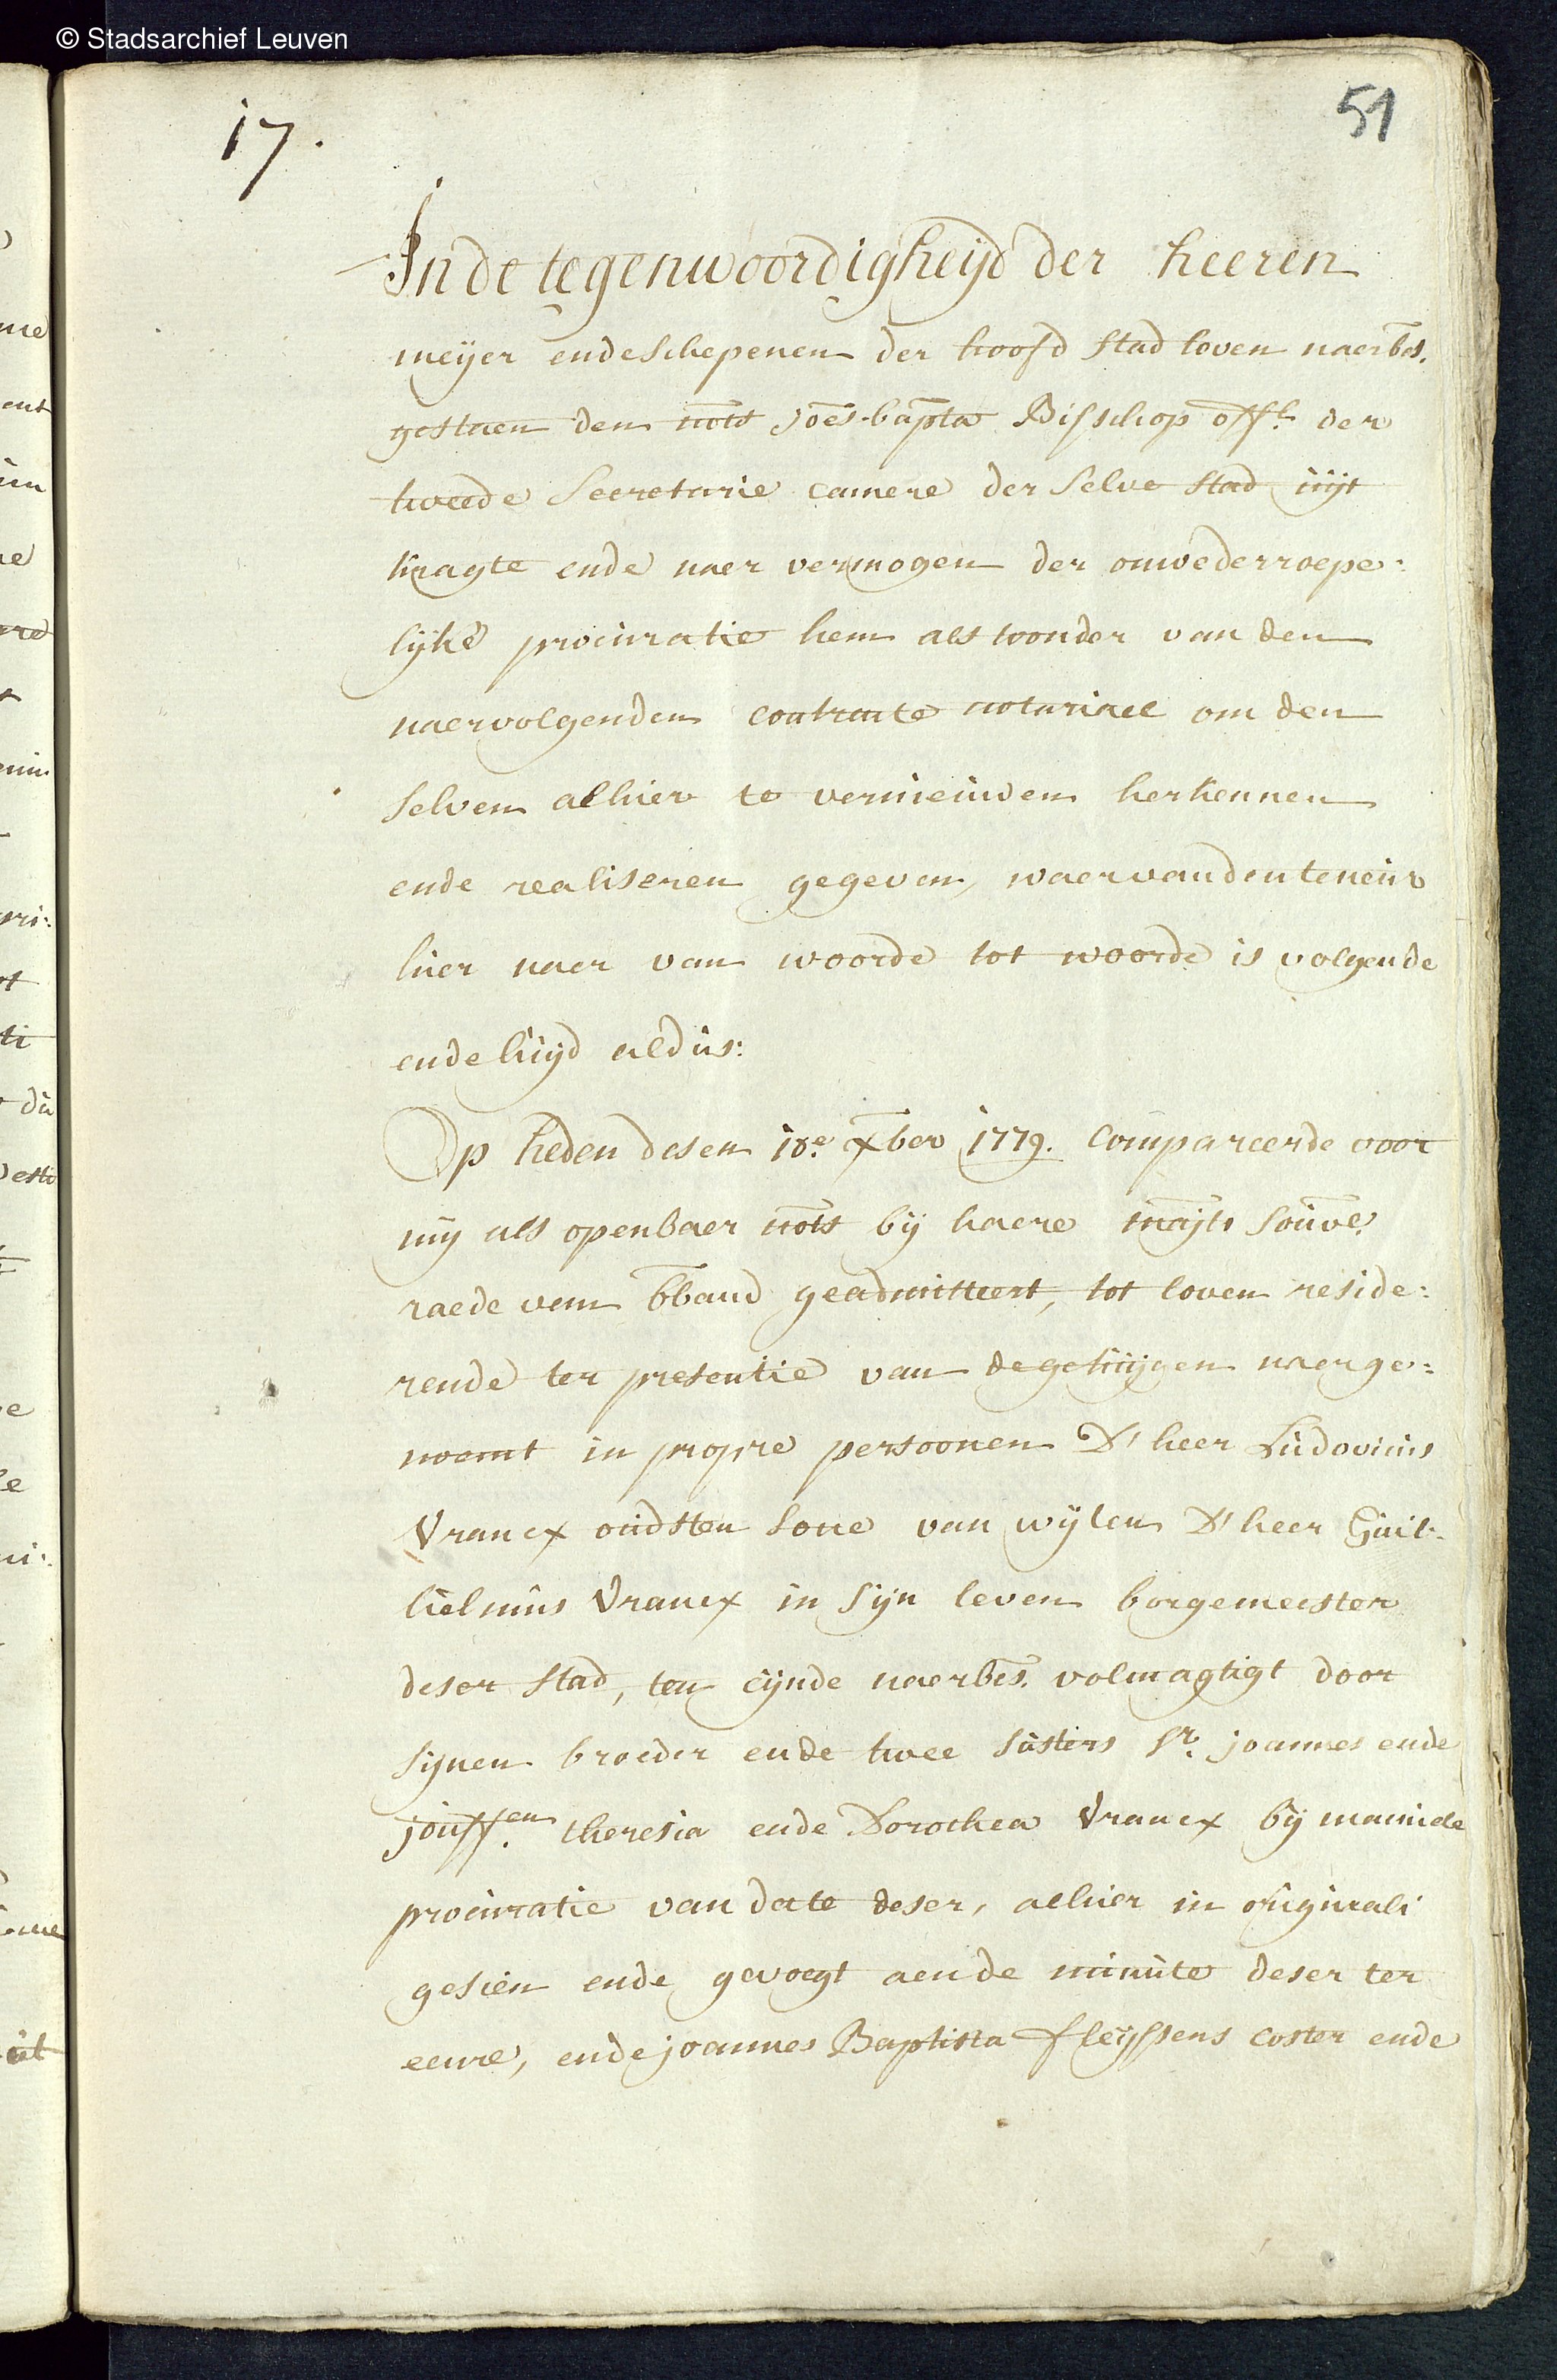 © Stadsarchief Leuven
17.
51
In de tegenwoordigheijd der heeren
meijer ende schepenen der hoofd stad loven naerbes.
gestaen den nots joes-bapta Bisschop offl. der
tweede Secretarie camere der selve stad uijt
kragte ende naer vermogen der onwederroepe:
lijke procuratie hem als toonder van den
naervolgenden contracte notariael om den
selven alhier te vernieuwen herkennen
ende realiseren gegeven, waer van den teneur
hier naer van woorde tot woorde is volgende
ende luijd aldus:
Op heden desen 18e. xber 1779. compareerde voor
mij als openbaer nots bij haere majts souve.
raede van bband geadmitteert, tot loven reside:
rende ter presentie van de getuijgen naerge:
noemt in propre persoonen D'heer Ludovicus
Vrancx oudsten sone van wijlen D'heer Guil:
lielmus Vrancx in sijn leven borgemeester
deser stad, ten eijnde naerbes. volmagtigt door
sijnen broeder ende twee susters sr. joannes ende
jouffen. theresia ende Dorothea Vrancx bij manuele
procuratie van date deser, alhier in originali
gesien ende gevoegt aen de minute deser ter
eenre, ende joannes Baptista fleijssens coster ende
me
ent
ien
re
pri:
ti
du
e
ni: